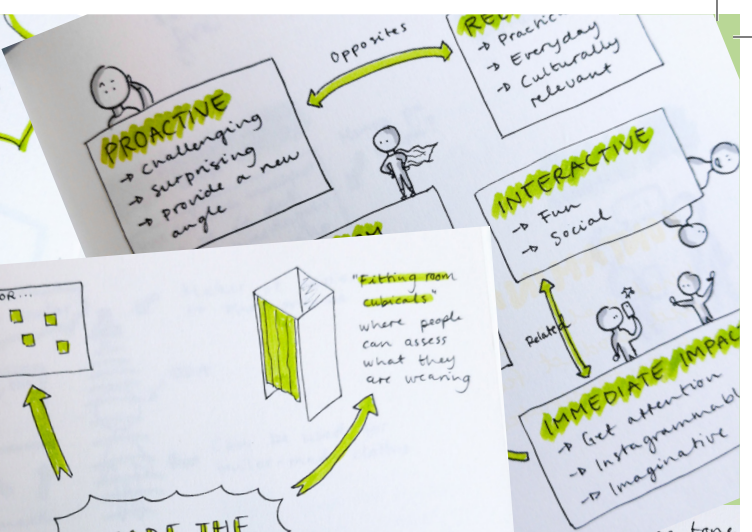 Opposites
→ Practic
→ Everyday
→ Culturally
relevant
PROACTIVE
→ Challenging
→ Surprising
→ Provide a new
angle
INTERACTIVE
→ Fun
→ Social
Related
IMMEDIATE IMPAC
→ Get attention
→ Instagrammabl
→ Imaginative
OR...
"Fitting room
cubicals"
where people
can assess
what they
are wearing
THE